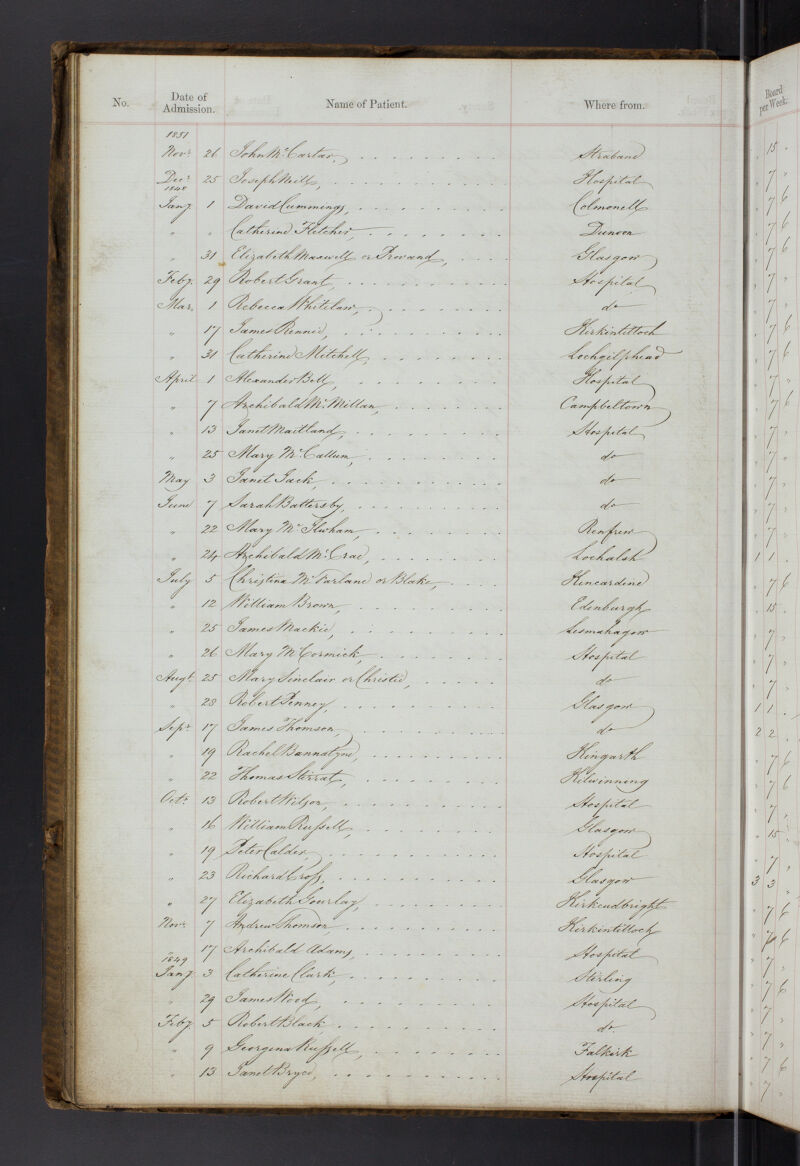 No. Date of Admission. Name of Patient. Where from. Board per Week.
1851
Novr. 26 John McCartar, Straband 15 .
Decr. 25 Joseph Neill, Hospital 7 "
1848
Jany. 1 David Cummings, Colmonell 7 6
" " Catherine Fletcher, Dunoon 7 6
" 31 Elizabeth Maxwell or Provand, Glasgow 7 6
Feby. 29 Robert Grant, Hospital 7 "
Mar. 1 Rebecca Whitelaw, do 7 "
" 17 James Rennie, Kirkintilloch 7 6
" 31 Catherine Mitchell, Lochgilphead 7 6
April 1 Alexander Bell, Hospital 7 "
" 7 Archibald McMillan, Campbeltown 7 6
" 13 Janet Maitland, Hospital 7 "
" 25 Mary McCallum, do 7 "
May 3 Janet Jack, do 7 "
June 7 Sarah Battersby, do 7 "
" 22 Mary McIlwham, Renfrew 7 "
" 24 Archibald McCrae, Lochalsh 1 1 .
July 5 Christina McFarlane or Blake, Kincardine 7 6
" 12 William Brown, Edinburgh 15 .
" 25 James Mackie, Lesmahagow 7 "
" 26 Mary McCormick, Hospital 7 "
Augt. 25 Mary Sinclair or Christie, do 7 "
" 28 Robert Penney, Glasgow 1 1 .
Sept. 17 James Thomson, do 2 2 .
" 19 Rachel Bannatyne, Kingarth 7 6
" 22 Thomas Stirrat, Kilwinning 7 6
Octr. 13 Robert Wilson, Hospital 7 "
" 16 William Russell, Glasgow 15 "
" 19 Peter Calder, Hospital 7 "
" 23 Richard Cross, Glasgow 3 3 .
" 27 Elizabeth Gourlay, Kirkcudbright 7 6
Novr. 7 Andrew Thomson, Kirkintilloch 7 6
" 17 Archibald Adams, Hospital 7 "
1849
Jany. 3 Catherine Clark, Stirling 7 6
" 29 James Wood, Hospital 7 "
Feby. 5 Robert Black do 7 "
" 9 Georgina Russell, Falkirk 7 6
" 13 Janet Bryce, Hospital 7 "